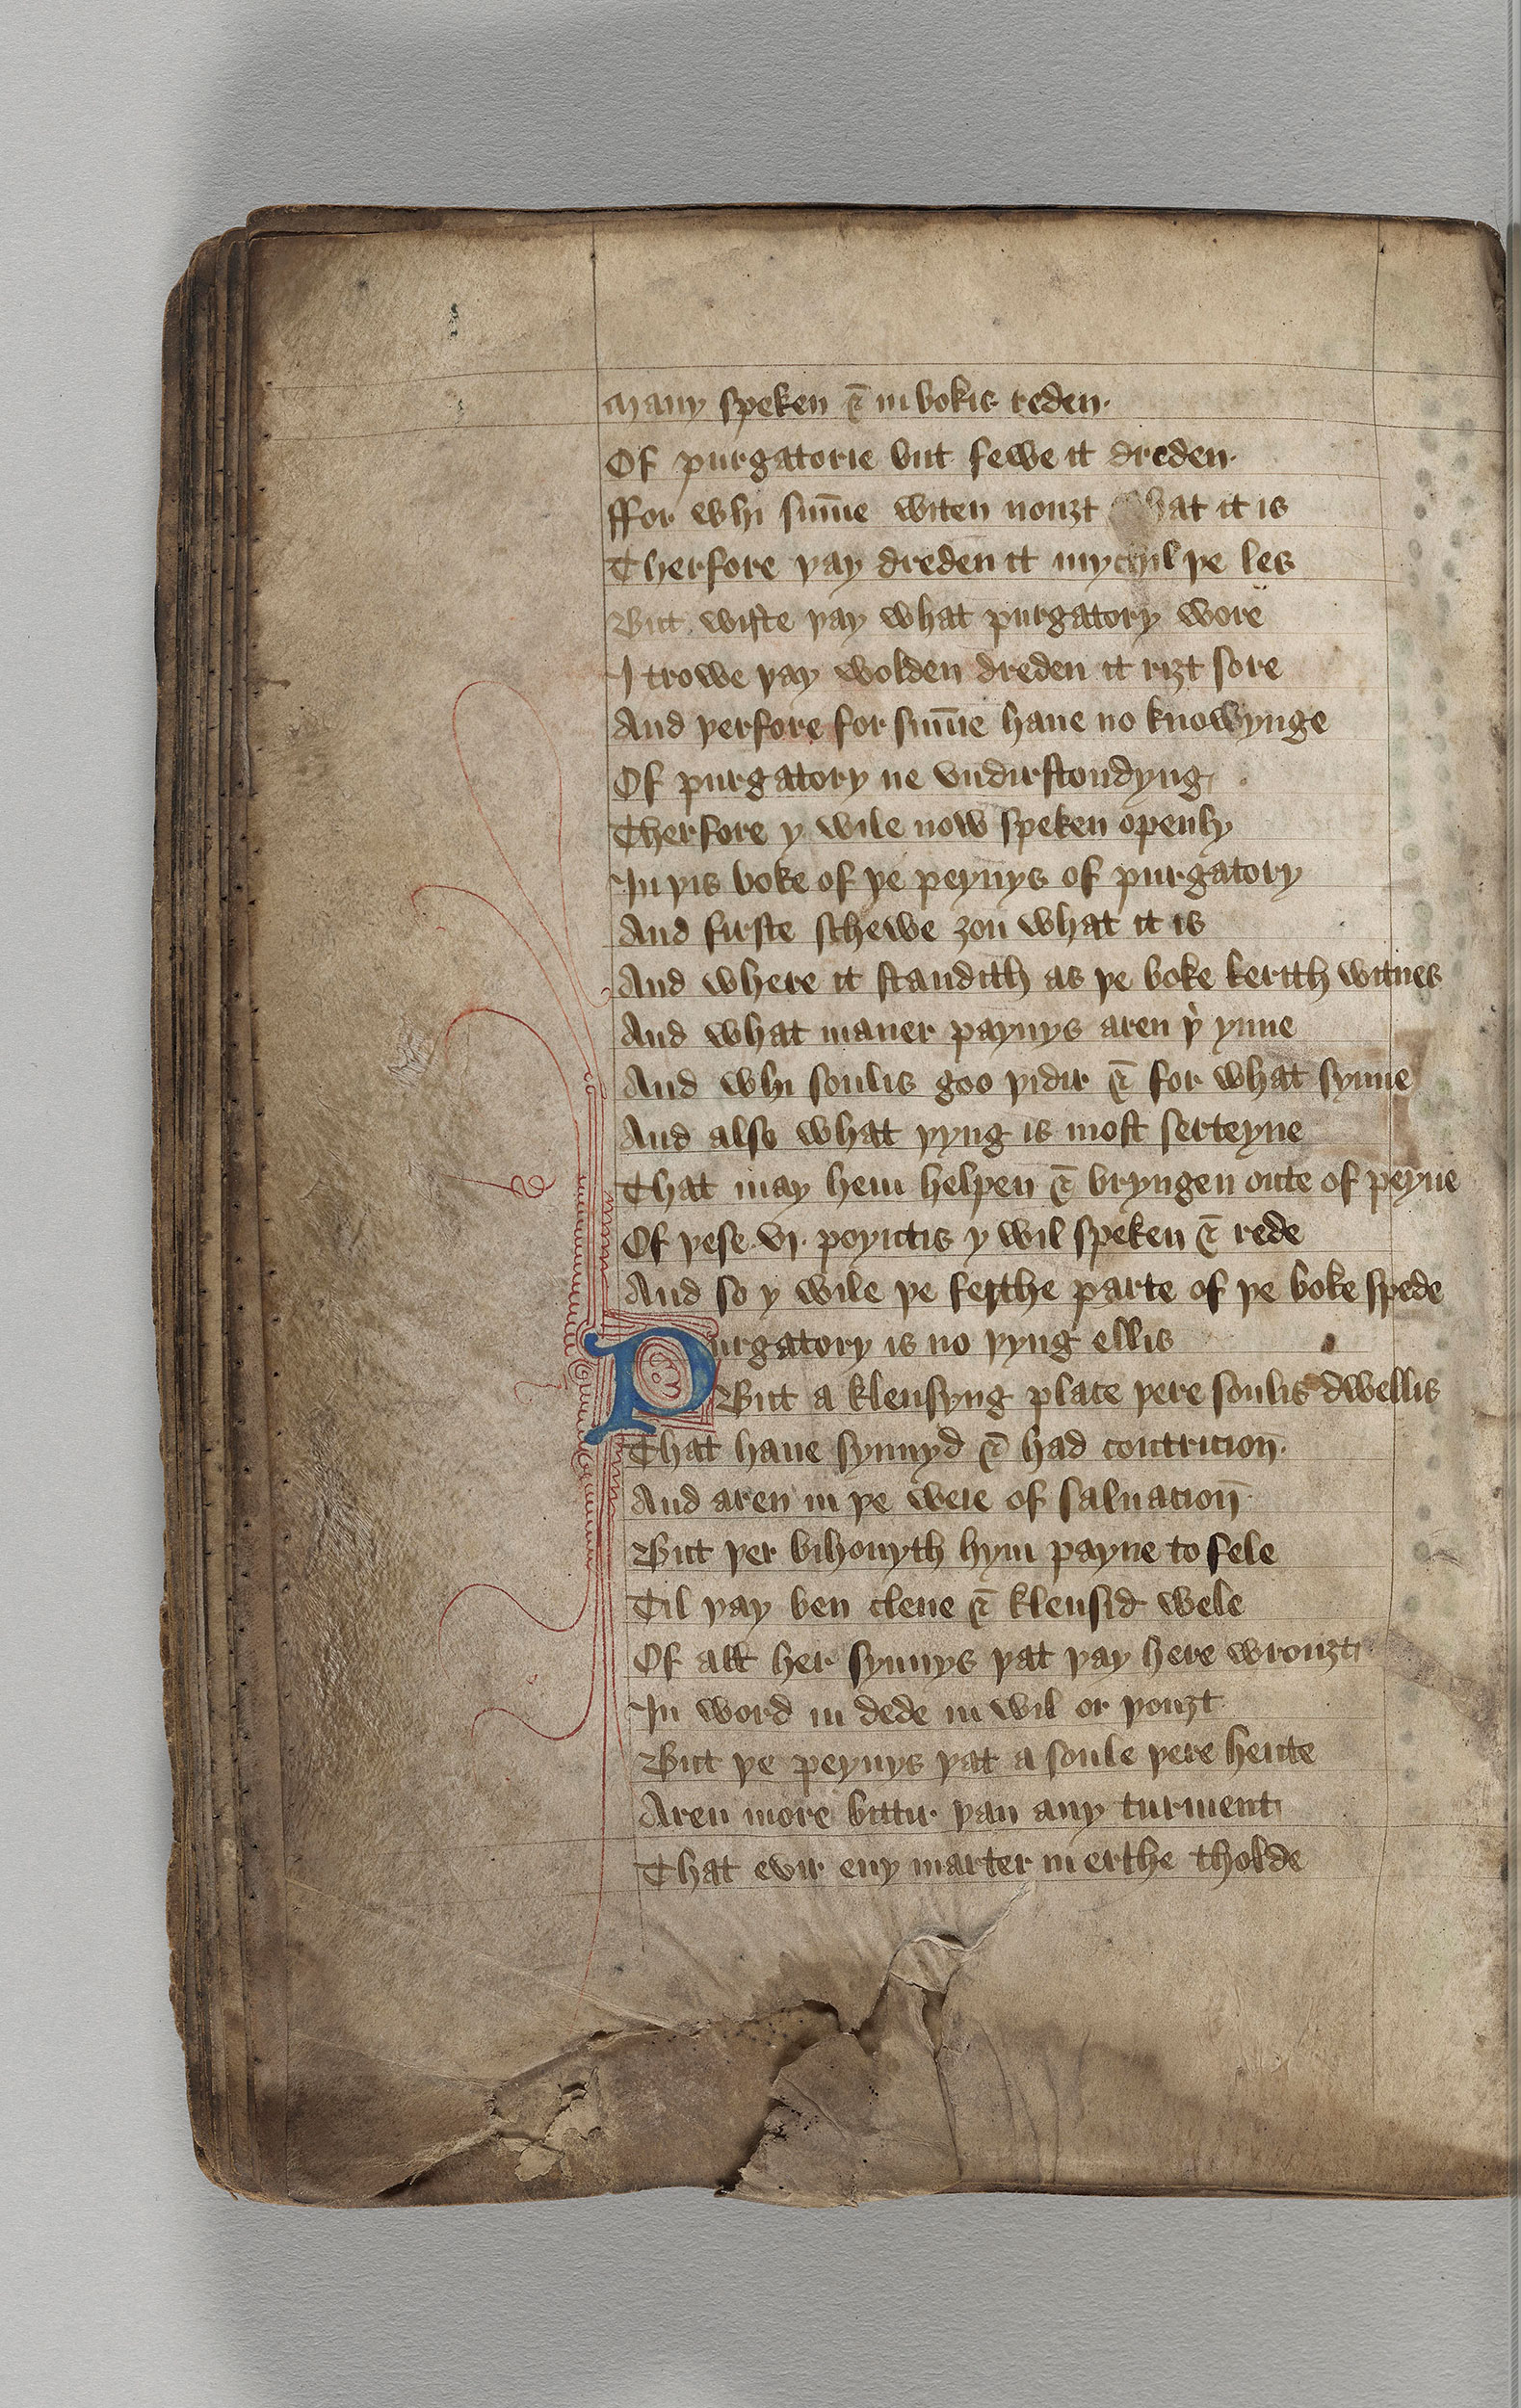 many speken ⁊ in bokis reden·
Of purgatorie but fewe it dreden·
ffor whi su̅me witen nouȝt what it is
Therfore þay dreden it mychil þe les
But wiste þay what purgatory wore
I trowe þay wolden dreden it riȝt sore
And þerfore for su̅me haue no knowynge
Of purgatory ne vndirstondyng
Therfore y wile now speken openly
In þis boke of þe peynys of purgatory
And firste schewe ȝou what it is
And where it standith as þe boke berith witnes
And what maner paynys aren þͥ ynne
And whi soulis goo þidir ⁊ for what synne
And also what þyng is most serteyne
That may hem helpen ⁊ bryngen oute of peyne
Of þese ·vj· poyntis y wil speken ⁊ rede
And so y wile þe ferthe parte of þe boke spede
Purgatory is no þyng ellis
But a klensyng place þere soulis dwellis
That haue synnyd ⁊ had contricion̅·
And aren in þe weie of saluacion̅·
But þer bihouyth hym payne to fele
Til þay ben clene ⁊ klensid wele
Of all her synnys þat þay here wrouȝt
In word in dede in wil or þouȝt
But þe peynys þat a soule þere hente
Aren more bittir þan any turment
That evir eny marter in erthe tholde